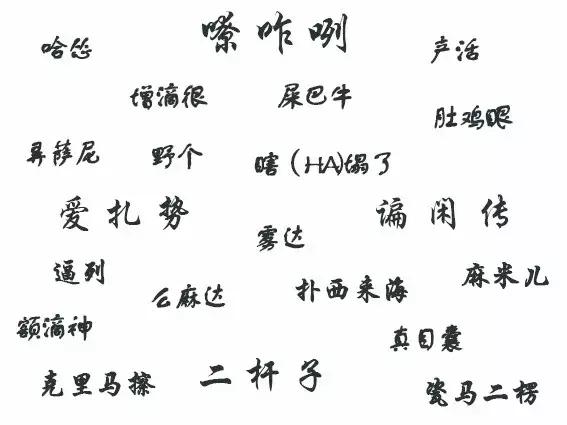 嘹咋咧
哈怂
声活
增滴很
屎巴牛
肚鸡眼
弄萨尼
野个
瞎（HA)塌了
爱扎势
谝闲传
雾达
逼列
么麻达
扑西来海
麻米儿
额滴神
真目囊
克里马擦
二杆子
瓷马二楞